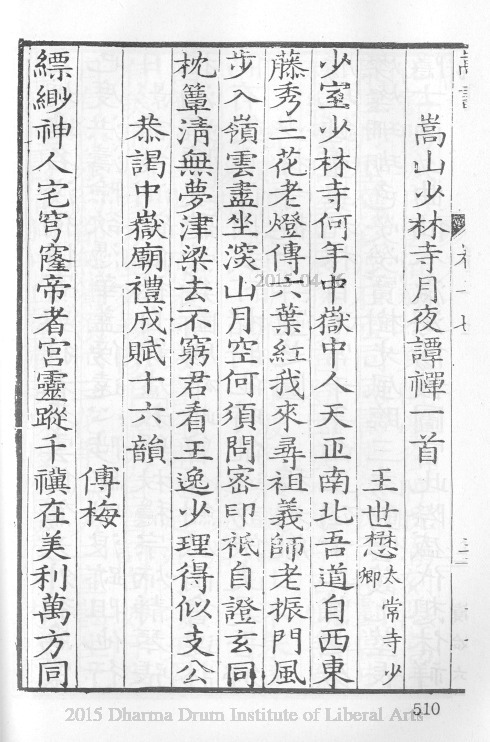 嵩山少林寺月夜譚禪一首
王世懋太常寺少卿
少室少林寺何年中嶽中人天正南北吾道自西東
藤秀三花老燈傳六葉紅我來尋祖義師老振門風
步入嶺雲盡坐深山月空何須問密印祗自證玄同
枕簟清無夢津梁去不窮君看王逸少理得似支公
恭謁中嶽廟禮成賦十六韻
傅梅
縹緲神人宅穹窿帝者宮靈蹤千禩在美利萬方同
510
2015-04-16
2015 Dharma Drum Institute of Liberal Arts